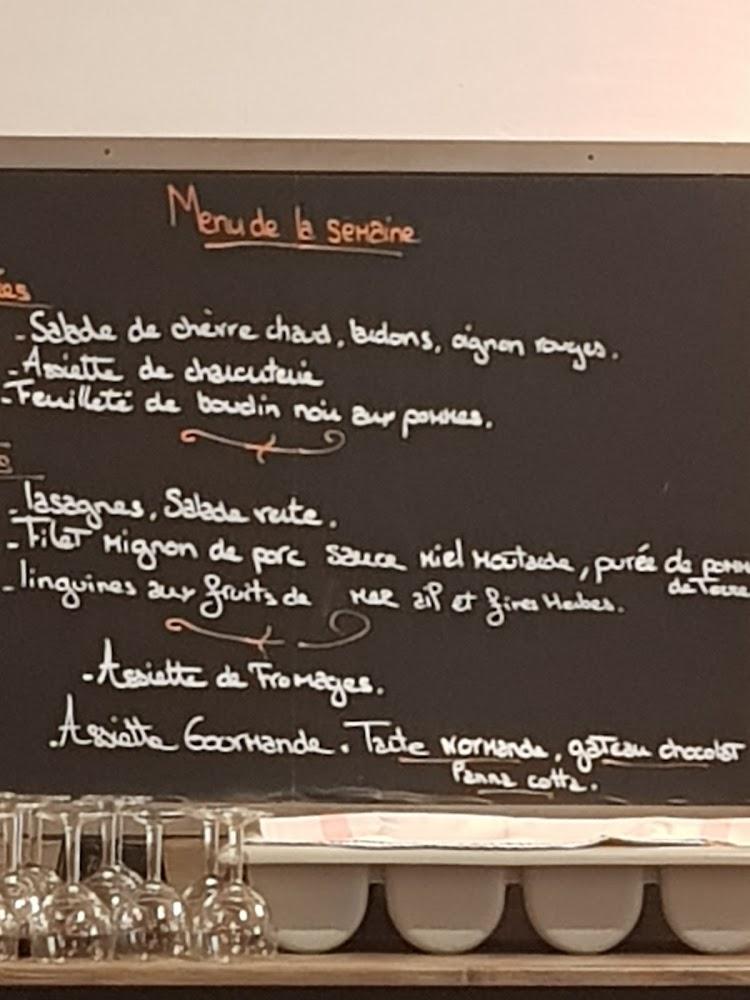 Menu de la semaine
ées
- Salade de chèvre chaud, lardons, oignon rouges.
- Assiette de charcuterie
- Feuilleté de boudin noir aux pommes.
s
- lasagnes, Salade verte.
- Filet Mignon de porc sauce Miel Moutarde, purée de pomm
de Terre
- linguines aux fruits de mer ail et fines Herbes.
- Assiette de Fromages.
. Assiette Gourmande. Tarte Normande, gâteau chocolat
Panna cotta.